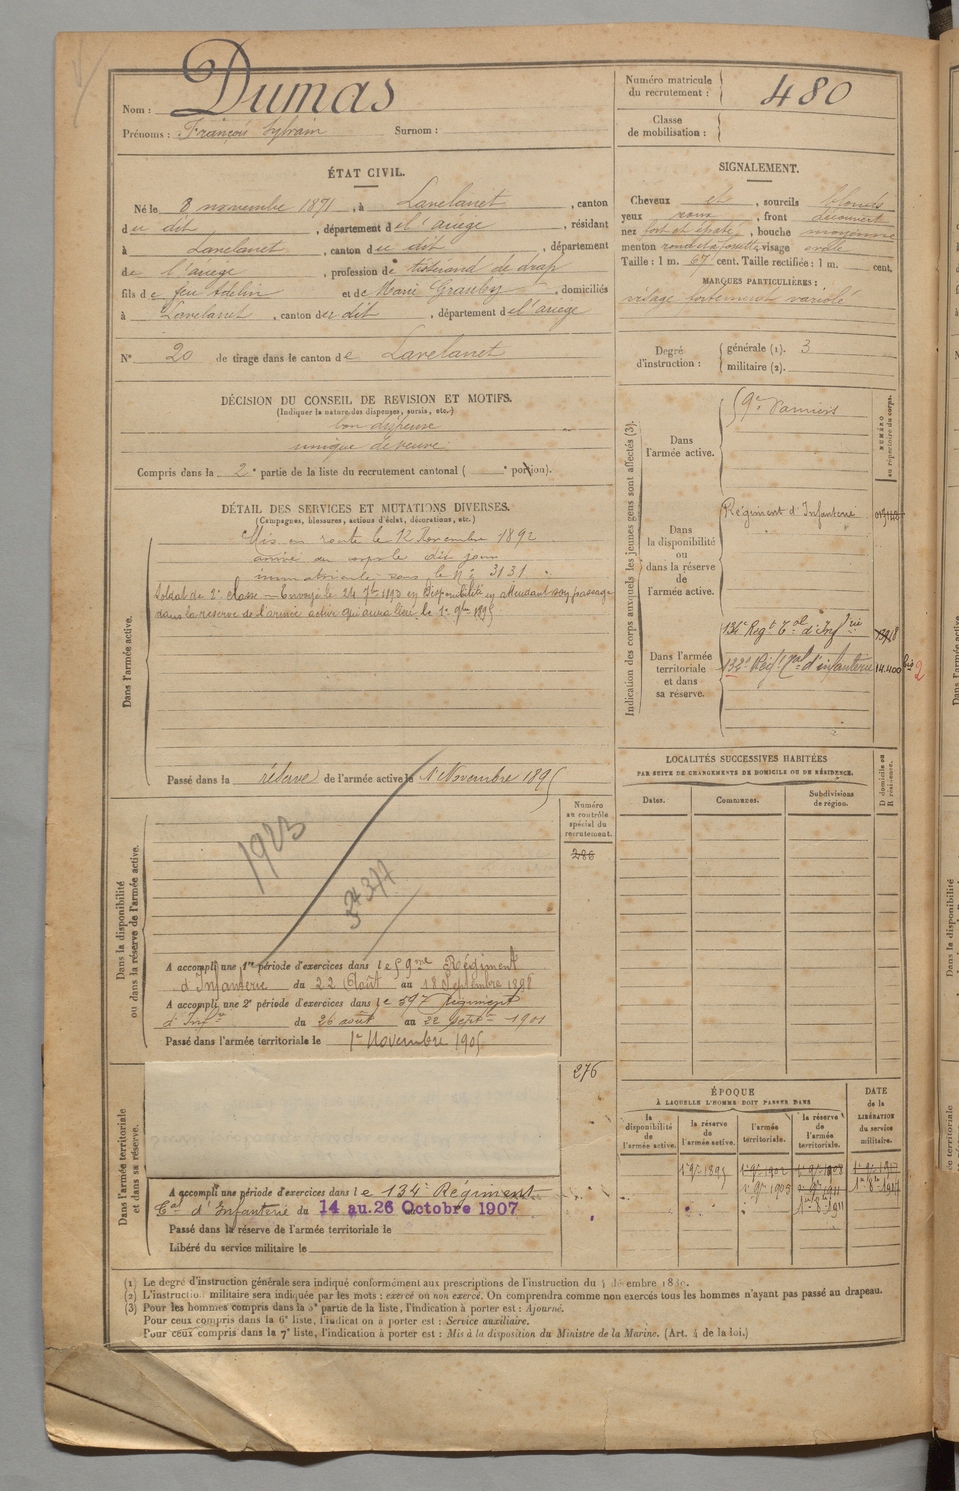 Nom : Dumas
Prénoms : François Sylvain Surnom :
Numéro matricule du recrutement : 480
Classe de mobilisation :
ÉTAT CIVIL.
Né le 8 novembre 1871, à Lavelanet, canton
du dit, département de l'ariège, résidant
à Lavelanet, canton du dit, département
de l'ariège, profession de tisserand de drap
fils de feu Adelin et de Marie, domiciliés
à Lavelanet, canton du dit, département de l'ariège
N° 20 de tirage dans le canton de Lavelanet
SIGNALEMENT.
Cheveux et, sourcils blonds
yeux roux, front découvert
nez fort et épaté, bouche moyenne
menton rond et à fossette, visage ovale
Taille : 1 m. 67 cent. Taille rectifiée : 1 m. cent.
MARQUES PARTICULIÈRES :
visage fortement variolé
Degré d'instruction : générale (1). 3
militaire (2).
DÉCISION DU CONSEIL DE REVISION ET MOTIFS.
(Indiquer la nature des dispenses, sursis, etc.)
bon dispensé
unique de veuve
Compris dans la 2e partie de la liste du recrutement cantonal ( e portion).
DÉTAIL DES SERVICES ET MUTATIONS DIVERSES.
(Campagnes, blessures, actions d'éclat, décorations, etc.)
Dans l'armée active.
Mis en route le 12 Novembre 1892
arrivé au corps le dit jour
immatriculé sous le n° 3131
Soldat de 2e classe — Envoyé le 24 7bre 1893 en Disponibilité en attendant son passage
dans la réserve de l'armée active qui aura lieu le 1er 9bre 1895
Passé dans la réserve de l'armée active le 1er Novembre 1895
Indication des corps auxquels les jeunes gens sont affectés (3).
Dans l'armée active.
Pamiers
NUMÉRO au répertoire du corps.
Dans la disponibilité ou dans la réserve de l'armée active.
Régiment d'Infanterie
Dans l'armée territoriale et dans sa réserve.
134e Regt Tal d'Infrie
132e Régt Tal d'infanterie 14.400 bis 2
LOCALITÉS SUCCESSIVES HABITÉES
PAR SUITE DE CHANGEMENTS DE DOMICILE OU DE RÉSIDENCE.
Dates. Communes. Subdivisions de région. D domicile ou R résidence.
Dans la disponibilité ou dans la réserve de l'armée active.
Numéro au contrôle spécial du recrutement.
286
1923
A accompli une 1re période d'exercices dans le 59me Régiment
d'Infanterie du 22 Août au 18 Septembre 1898
A accompli une 2e période d'exercices dans le 59e Régiment
d'Infie du 26 août au 22 septre 1901
Passé dans l'armée territoriale le 1er Novembre 1905
276
Dans l'armée territoriale et dans sa réserve.
A accompli une période d'exercices dans le 134e Régiment
Tal d'Infanterie du 14 au 26 Octobre 1907
Passé dans la réserve de l'armée territoriale le
Libéré du service militaire le
ÉPOQUE
À LAQUELLE L'HOMME DOIT PASSER DANS
la disponibilité de l'armée active. la réserve de l'armée active. l'armée territoriale. la réserve de l'armée territoriale.
DATE de la LIBÉRATION du service militaire.
1er 9bre 1895
(1) Le degré d'instruction générale sera indiqué conformément aux prescriptions de l'instruction du
(2) L'instruction militaire sera indiquée par les mots : exercé ou non exercé. On comprendra comme non exercés tous les hommes n'ayant pas passé au drapeau.
(3) Pour les hommes compris dans la 3e partie de la liste, l'indication à porter est : Ajourné.
Pour ceux compris dans la 6e liste, l'indication à porter est : Service auxiliaire.
Pour ceux compris dans la 7e liste, l'indication à porter est : Mis à la disposition du Ministre de la Marine. (Art. 4 de la loi.)